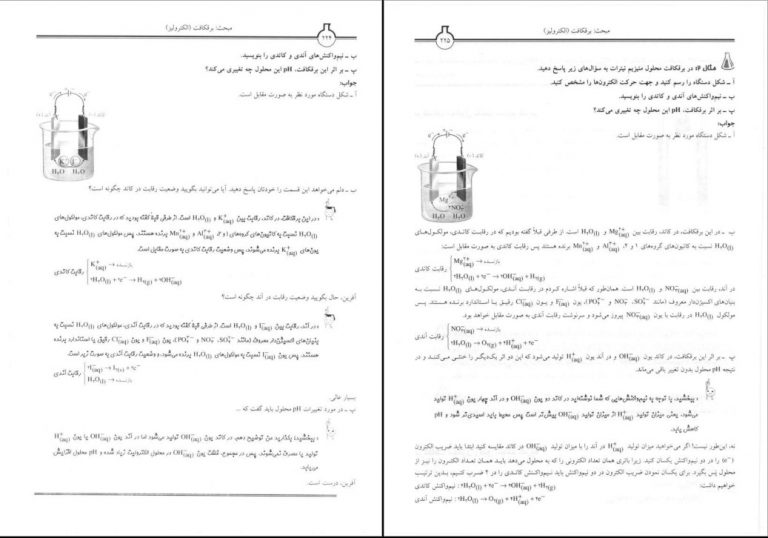 مبحث: برقکافت (الکترولیز)
۲۲۵
مثال ۱۶: در برقکافت محلول منیزیم نیترات به سؤال‌های زیر پاسخ دهید.
آ ـ شکل دستگاه را رسم کنید و جهت حرکت الکترون‌ها را مشخص کنید.
ب ـ نیم‌واکنش‌های آندی و کاتدی را بنویسید.
پ ـ بر اثر برقکافت، pH این محلول چه تغییری می‌کند؟
جواب:
آ ـ شکل دستگاه مورد نظر به صورت مقابل است.
Mg²⁺
NO₃⁻
H₂O H₂O
ب ـ در این برقکافت، در کاتد، رقابت بین Mg²⁺(aq) و H₂O(l) است. از طرفی قبلاً گفته بودیم که در رقابت کاتدی، مولکول‌های
H₂O(l) نسبت به کاتیون‌های گروه‌های ۱ و ۲، Al³⁺(aq) و Mn²⁺(aq) برنده هستند پس رقابت کاتدی به صورت مقابل است:
رقابت کاتدی { Mg²⁺(aq) → بازنده
۲H₂O(l) + ۲e⁻ → ۲OH⁻(aq) + H₂(g)
در آند، رقابت بین NO₃⁻(aq) و H₂O(l) است. همان‌طور که قبلاً اشاره کردم در رقابت آندی، مولکول‌های H₂O(l) نسبت به
بنیان‌های اکسیژن‌دار معروف (مانند SO₄²⁻، NO₃⁻ و PO₄³⁻)، یون F⁻(aq) و یون Cl⁻(aq) رقیق یا استاندارد برنده هستند. پس
مولکول H₂O(l) در رقابت با یون NO₃⁻(aq) پیروز می‌شود و سرنوشت رقابت آندی به صورت مقابل خواهد بود.
رقابت آندی { NO₃⁻(aq) → بازنده
۲H₂O(l) → O₂(g) + ۴H⁺(aq) + ۴e⁻
پ ـ بر اثر این برقکافت، در کاتد یون OH⁻(aq) و در آند یون H⁺(aq) تولید می‌شود که این دو اثر یک‌دیگر را خنثی می‌کنند و در
نتیجه pH محلول بدون تغییر باقی می‌ماند.
: ببخشید، با توجه به نیم‌واکنش‌هایی که شما نوشته‌اید در کاتد دو یون OH⁻(aq) و در آند چهار یون H⁺(aq) تولید
می‌شود. یعنی میزان تولید H⁺(aq) از میزان تولید OH⁻(aq) بیش‌تر است پس محیط باید اسیدی‌تر شود و pH
کاهش یابد.
نه، این‌طور نیست! اگر می‌خواهید میزان تولید H⁺(aq) در آند را با میزان تولید OH⁻(aq) در کاتد مقایسه کنید ابتدا باید ضریب الکترون
(e⁻) را در دو نیم‌واکنش یکسان کنید. زیرا باتری همان تعداد الکترونی را که به محلول می‌دهد باید همان تعداد الکترون را نیز از
محلول پس بگیرد. برای یکسان نمودن ضریب الکترون در دو نیم‌واکنش باید نیم‌واکنش کاتدی را در ۲ ضرب کنیم، بدین ترتیب
خواهیم داشت:
نیم‌واکنش کاتدی : ۴H₂O(l) + ۴e⁻ → ۴OH⁻(aq) + ۲H₂(g)
نیم‌واکنش آندی : ۲H₂O(l) → O₂(g) + ۴H⁺(aq) + ۴e⁻
مبحث: برقکافت (الکترولیز)
ب ـ نیم‌واکنش‌های آندی و کاتدی را بنویسید.
پ ـ بر اثر این برقکافت، pH این محلول چه تغییری می‌کند؟
جواب:
آ ـ شکل دستگاه مورد نظر به صورت مقابل است.
K⁺ I⁻
H₂O H₂O
ب ـ دلم می‌خواهد این قسمت را خودتان پاسخ دهید. آیا می‌توانید بگویید وضعیت رقابت در کاتد چگونه است؟
: در این برقکافت، در کاتد، رقابت بین K⁺(aq) و H₂O(l) است. از طرفی قبلاً گفته بودید که در رقابت کاتدی، مولکول‌های
H₂O(l) نسبت به کاتیون‌های گروه‌های ۱ و ۲، Al³⁺(aq) و Mn²⁺(aq) برنده هستند. پس مولکول‌های H₂O(l) نسبت به
یون‌های K⁺(aq) برنده می‌شوند. پس وضعیت رقابت کاتدی به صورت مقابل است.
رقابت کاتدی { K⁺(aq) → بازنده
۲H₂O(l) + ۲e⁻ → H₂(g) + ۲OH⁻(aq)
آفرین، حال بگویید وضعیت رقابت در آند چگونه است؟
: در آند، رقابت بین I⁻(aq) و H₂O(l) است. از طرفی قبلاً گفته بودید که در رقابت آندی، مولکول‌های H₂O(l) نسبت به
بنیان‌های اکسیژن‌دار معروف (مانند SO₄²⁻، NO₃⁻ و PO₄³⁻)، یون F⁻(aq) و یون Cl⁻(aq) رقیق یا استاندارد برنده
هستند. پس یون I⁻(aq) نسبت به مولکول‌های H₂O(l) برنده می‌شود و وضعیت رقابت آندی به صورت زیر است.
رقابت آندی { ۲I⁻(aq) → I₂(s) + ۲e⁻
H₂O(l) → بازنده
بسیار عالی
پ ـ در مورد تغییرات pH محلول باید گفت که ...
: ببخشید، بگذارید من توضیح دهم. در کاتد یون OH⁻(aq) تولید می‌شود اما در آند یون OH⁻(aq) یا یون H⁺(aq)
تولید یا مصرف نمی‌شوند. پس در مجموع، غلظت یون OH⁻(aq) در محلول الکترولیت زیاد شده و pH محلول افزایش
می‌یابد.
آفرین، درست است.